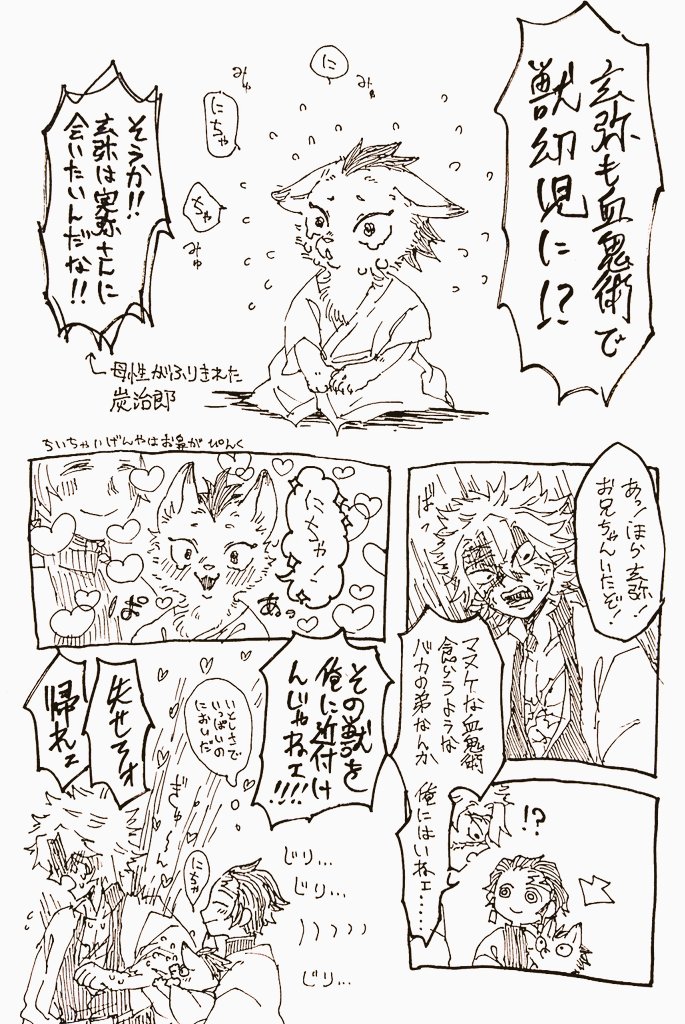 玄弥も血鬼術で
獣幼児に!?
に
みゅ
みゅ
にちゃ
ちゃ
みゅ
そうか!!
玄弥は実弥さんに
会いたいんだな!!
母性がふりきれた
炭治郎
あっ!ほら玄弥!
お兄ちゃんいたぞ!
ばっ
ちいちゃいげんやはお鼻がぴんく
にちゃ!
ぱ
あっ
マヌケな血鬼術
食らうような
バカの弟なんか
俺にはいねェ……
!?
その獣を
俺に近付け
んじゃねェ!!!!
いとしさで
いっぱいの
においだ
失せろォ
帰れェ
ぎゅ〜ん
にちゃ
じり…
じり…
じり…